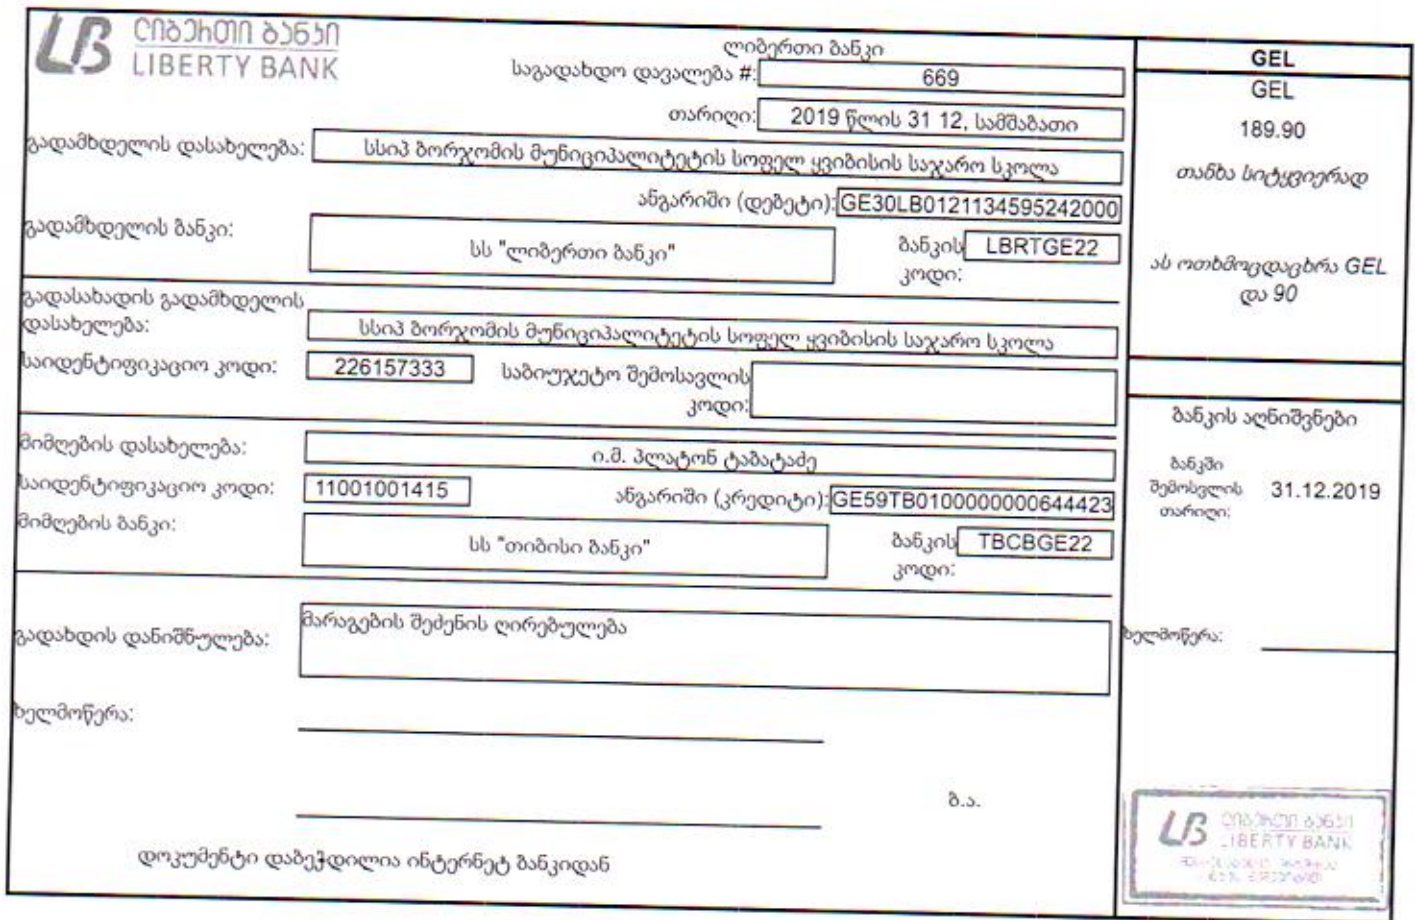 ლიბერთი ბანკი
LIBERTY BANK
ლიბერთი ბანკი
საგადახდო დავალება #: 669
თარიღი: 2019 წლის 31 12, სამშაბათი
გადამხდელის დასახელება: სსიპ ბორჯომის მუნიციპალიტეტის სოფელ ყვიბისის საჯარო სკოლა
ანგარიში (დებეტი): GE30LB0121134595242000
გადამხდელის ბანკი: სს "ლიბერთი ბანკი" ბანკის კოდი: LBRTGE22
გადასახადის გადამხდელის
დასახელება: სსიპ ბორჯომის მუნიციპალიტეტის სოფელ ყვიბისის საჯარო სკოლა
საიდენტიფიკაციო კოდი: 226157333 საბიუჯეტო შემოსავლის
კოდი:
მიმღების დასახელება: ი.მ. პლატონ ტაბატაძე
საიდენტიფიკაციო კოდი: 11001001415 ანგარიში (კრედიტი): GE59TB0100000000644423
მიმღების ბანკი: სს "თიბისი ბანკი" ბანკის კოდი: TBCBGE22
გადახდის დანიშნულება: მარაგების შეძენის ღირებულება
ხელმოწერა:
ბ.ა.
დოკუმენტი დაბეჭდილია ინტერნეტ ბანკიდან
GEL
GEL
189.90
თანხა სიტყვიერად
ას ოთხმოცდაცხრა GEL
და 90
ბანკის აღნიშვნები
ბანკში
შემოსვლის 31.12.2019
თარიღი:
ხელმოწერა:
ლიბერთი ბანკი
LIBERTY BANK